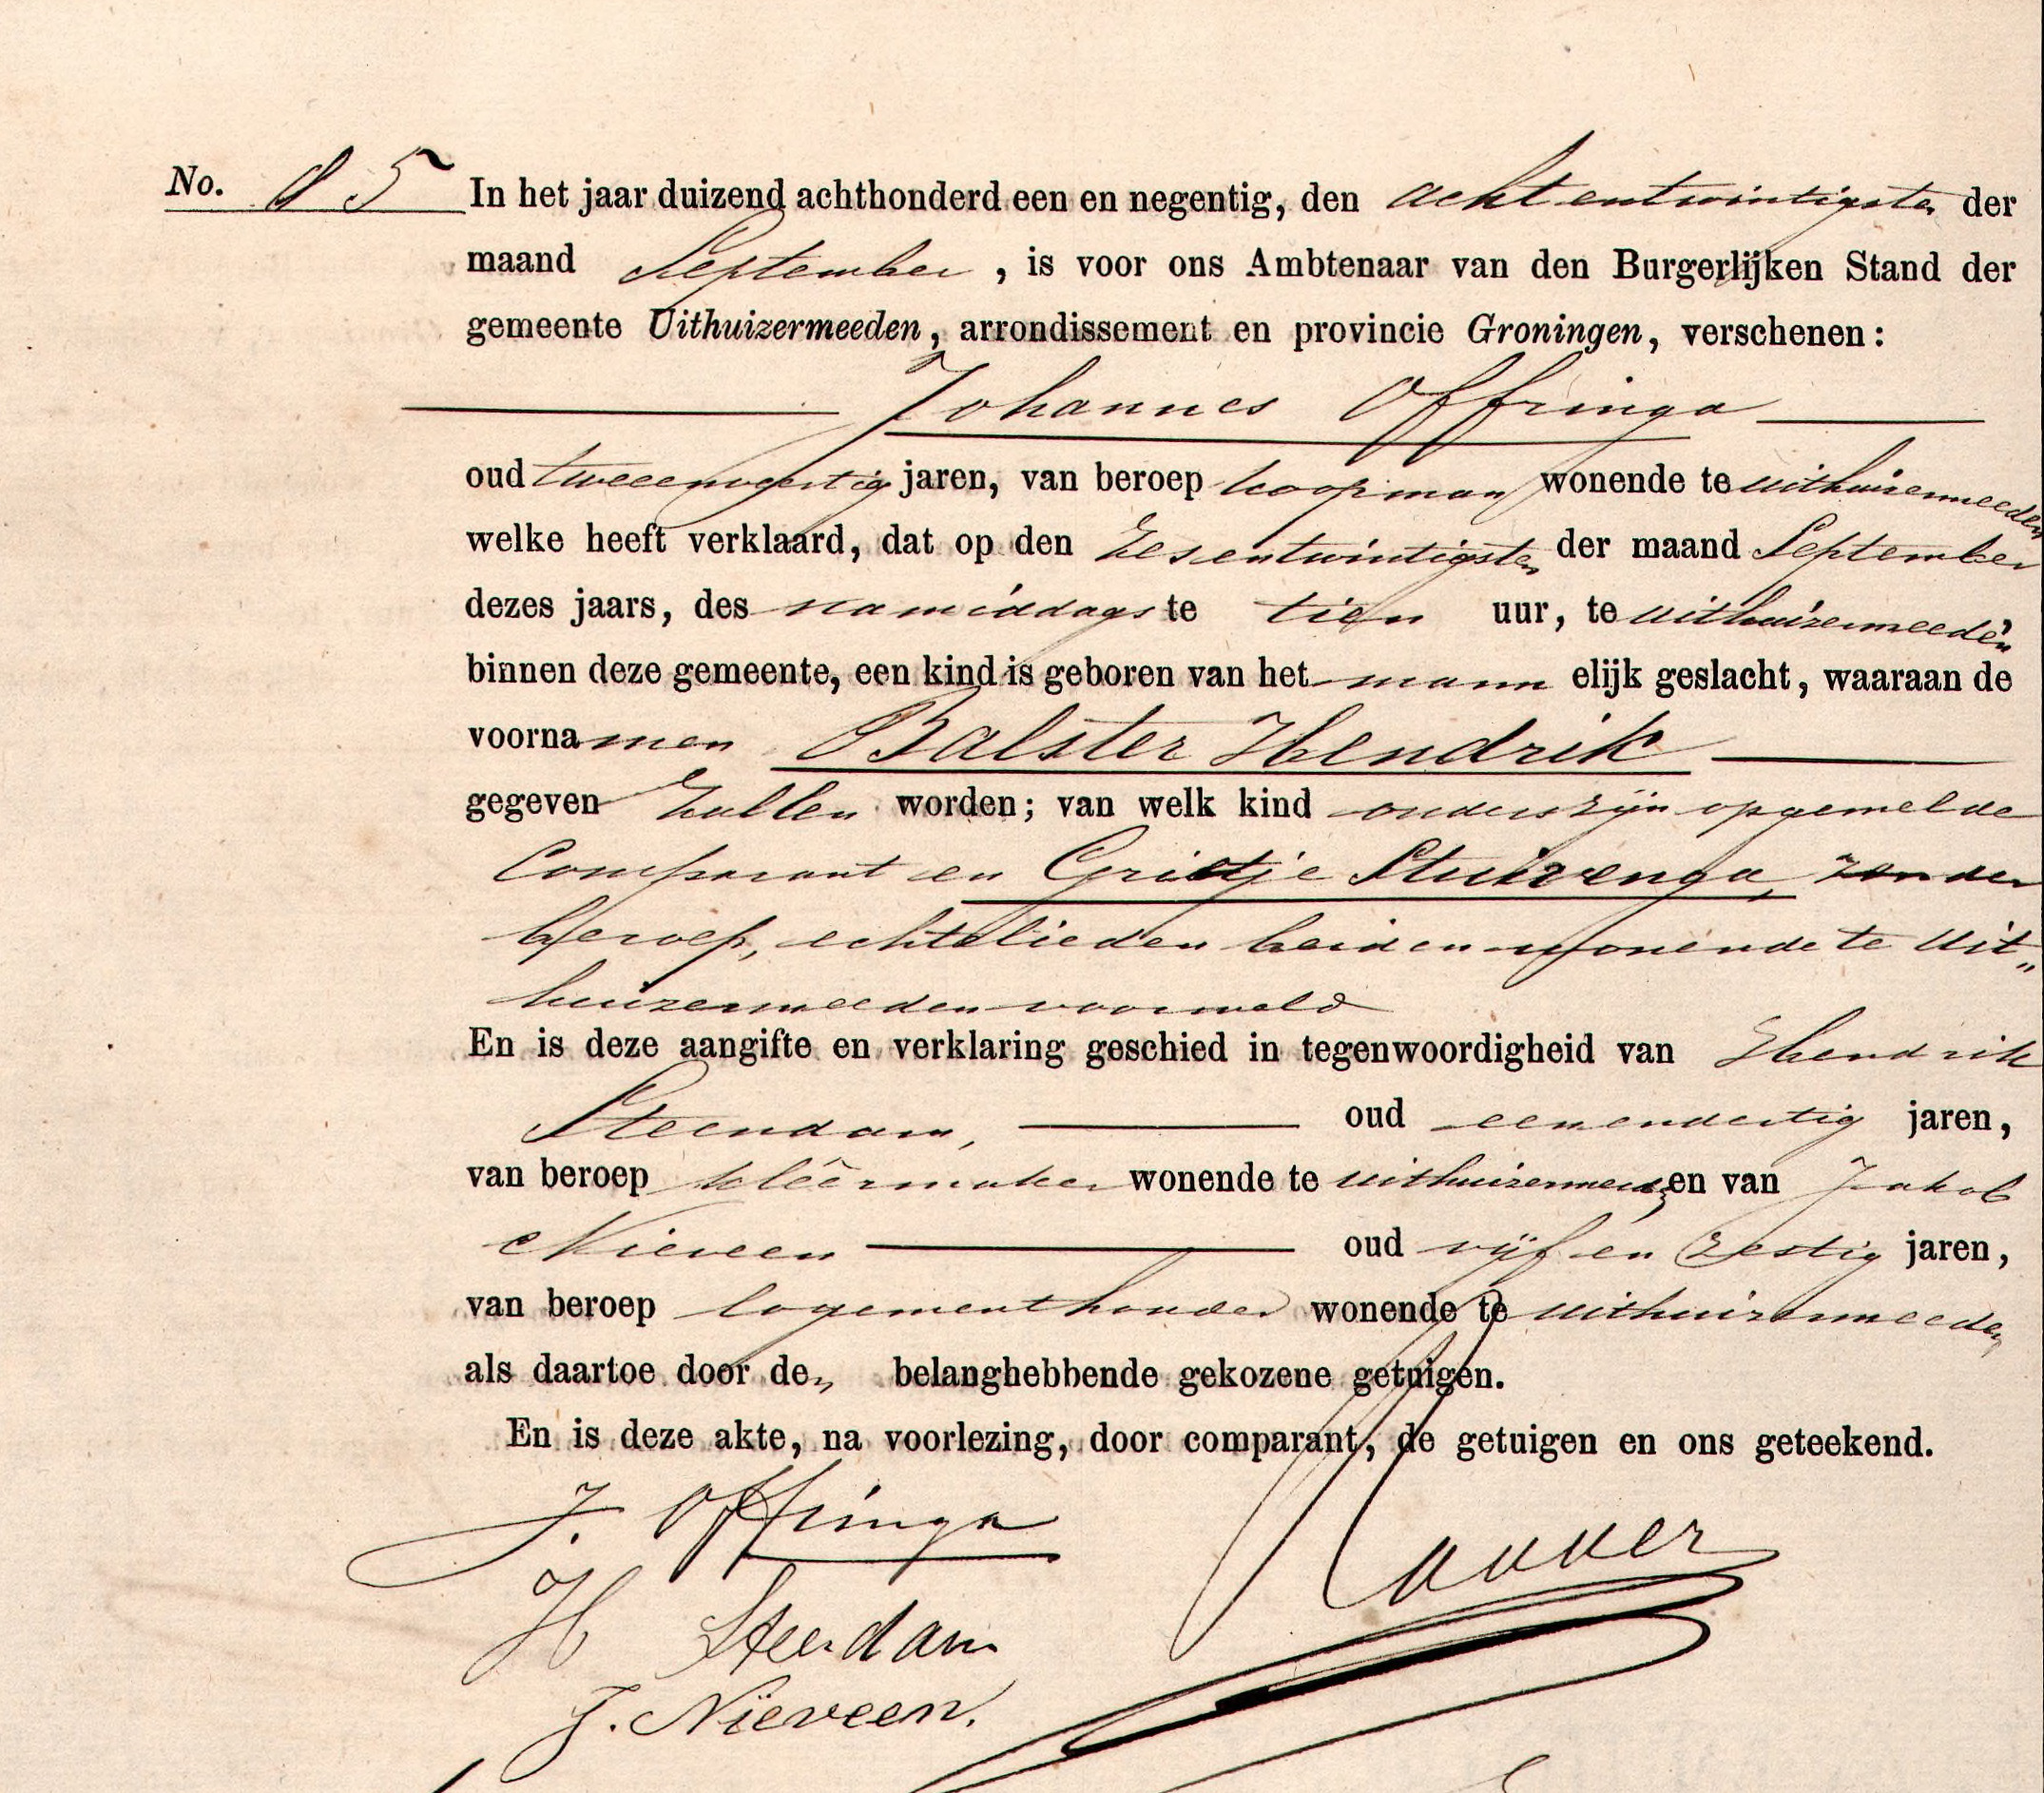 No. 85 In het jaar duizend achthonderd een en negentig, den achtentwintigsten der
maand September, is voor ons Ambtenaar van den Burgerlijken Stand der
gemeente Uithuizermeeden, arrondissement en provincie Groningen, verschenen:
Johannes Offringa
oud tweeenveertig jaren, van beroep koopman wonende te uithuizermeeden
welke heeft verklaard, dat op den zesentwintigsten der maand September
dezes jaars, des namiddags te tien uur, te uithuizermeeden
binnen deze gemeente, een kind is geboren van het mannelijk geslacht, waaraan de
voornamen Balster Hendrik
gegeven zullen worden; van welk kind ouders zijn opgemelde
Comparant en Grietje Stuivenga, zonder
beroep, echtelieden beiden wonende te Uit„
huizermeeden voormeld
En is deze aangifte en verklaring geschied in tegenwoordigheid van Hendrik
Steendam, oud eenendertig jaren,
van beroep kleêrmaker wonende te uithuizermeeden en van Jakob
Nieveen oud vijf en zestig jaren,
van beroep logementhouder wonende te uithuizermeeden
als daartoe door de„ belanghebbende gekozene getuigen.
En is deze akte, na voorlezing, door comparant, de getuigen en ons geteekend.
J. Offringa
H Steendam
J. Nieveen.